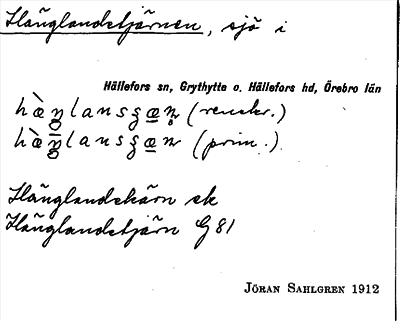 Hänglandstjärnen, sjö i
Hällefors sn, Grythytte o. Hällefors hd, Örebro län
(renskr.)
(prim.)
Hänglandskärn ek
Hänglandstjärn G 81
JÖRAN SAHLGREN 1912